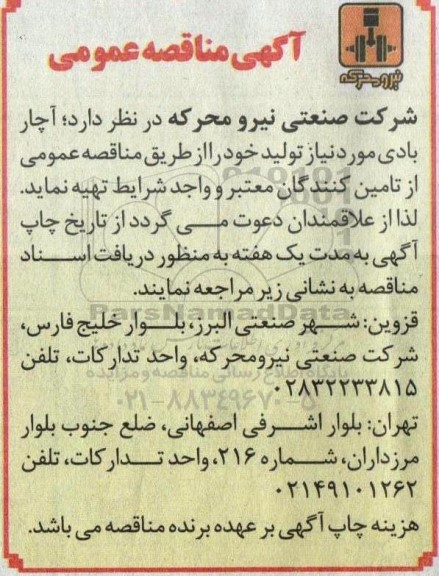 آگهی مناقصه عمومی
نیرو محرکه
شرکت صنعتی نیرو محرکه در نظر دارد؛ آچار
بادی مورد نیاز تولید خود را از طریق مناقصه عمومی
از تامین کنندگان معتبر و واجد شرایط تهیه نماید.
لذا از علاقمندان دعوت می گردد از تاریخ چاپ
آگهی به مدت یک هفته به منظور دریافت اسناد
مناقصه به نشانی زیر مراجعه نمایند.
ParsNamadData
قزوین: شهر صنعتی البرز، بلوار خلیج فارس،
شرکت صنعتی نیرومحرکه، واحد تدارکات، تلفن
پایگاه اطلاع رسانی مناقصه و مزایده
۰۲۸۳۲۲۳۳۸۱۵
۰۲۱-۸۸۳۴۹۶۷۰-۵
تهران: بلوار اشرفی اصفهانی، ضلع جنوب بلوار
مرزداران، شماره ۲۱۶، واحد تدارکات، تلفن
۰۲۱۴۹۱۰۱۲۶۲
هزینه چاپ آگهی بر عهده برنده مناقصه می باشد.